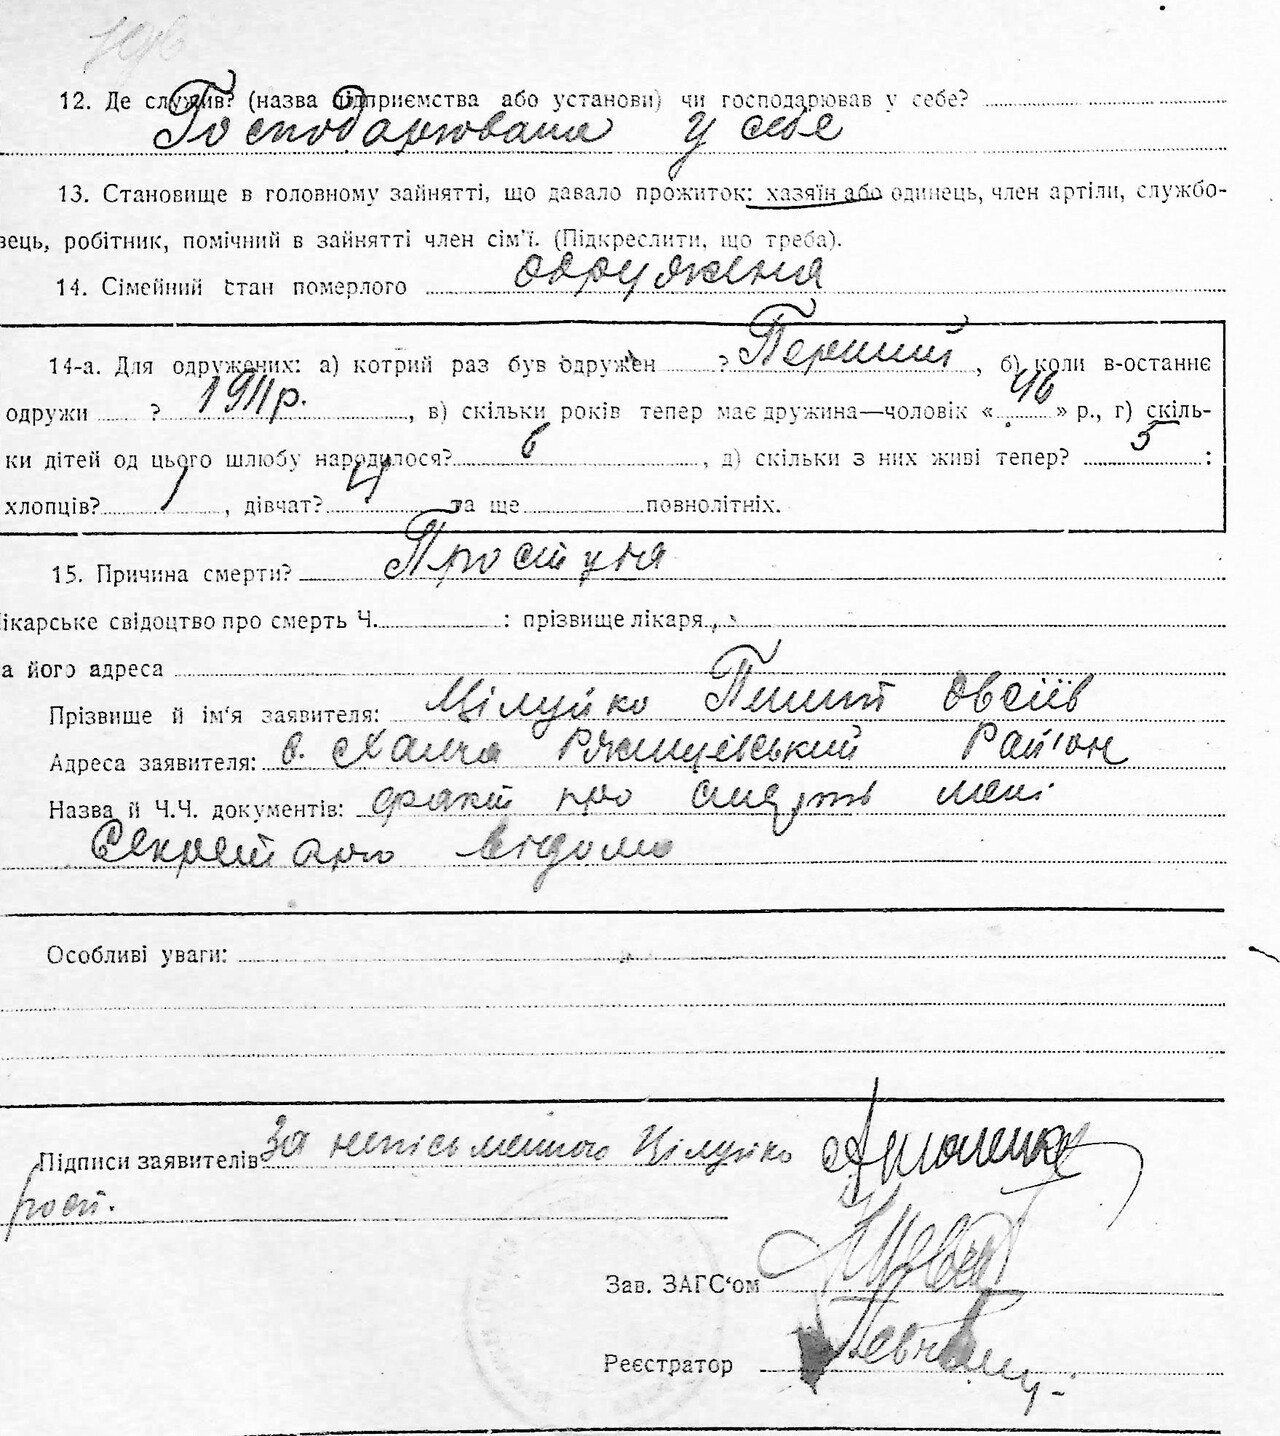 12. Де служив? (назва підприємства або установи) чи господарював у себе?
Господарювала у себе
13. Становище в головному зайнятті, що давало прожиток: хазяїн або одинець, член артіли, службо-
вець, робітник, помічний в зайнятті член сім'ї. (Підкреслити, що треба).
14. Сімейний стан померлого одружена
14-а. Для одружених: а) котрий раз був одружен ? Перший, б) коли в-останнє
одружи ? 1911 р., в) скільки років тепер має дружина—чоловік «46» р., г) скіль-
ки дітей од цього шлюбу народилося? 6, д) скільки з них живі тепер? 5:
хлопців? 1, дівчат? 4 та ще повнолітніх.
15. Причина смерти? Простуда
лікарське свідоцтво про смерть Ч. : прізвище лікаря
а його адреса
Прізвище й ім'я заявителя: Цілуйко Пилип Овсіїв
Адреса заявителя: с. Халча Ржищівський Район
Назва й Ч.Ч. документів: факт про смерть мені
Секретарю відомо
Особливі уваги:
Підписи заявителів За неписьменного Цілуйко
рост.
Зав. ЗАГС'ом
Реєстратор